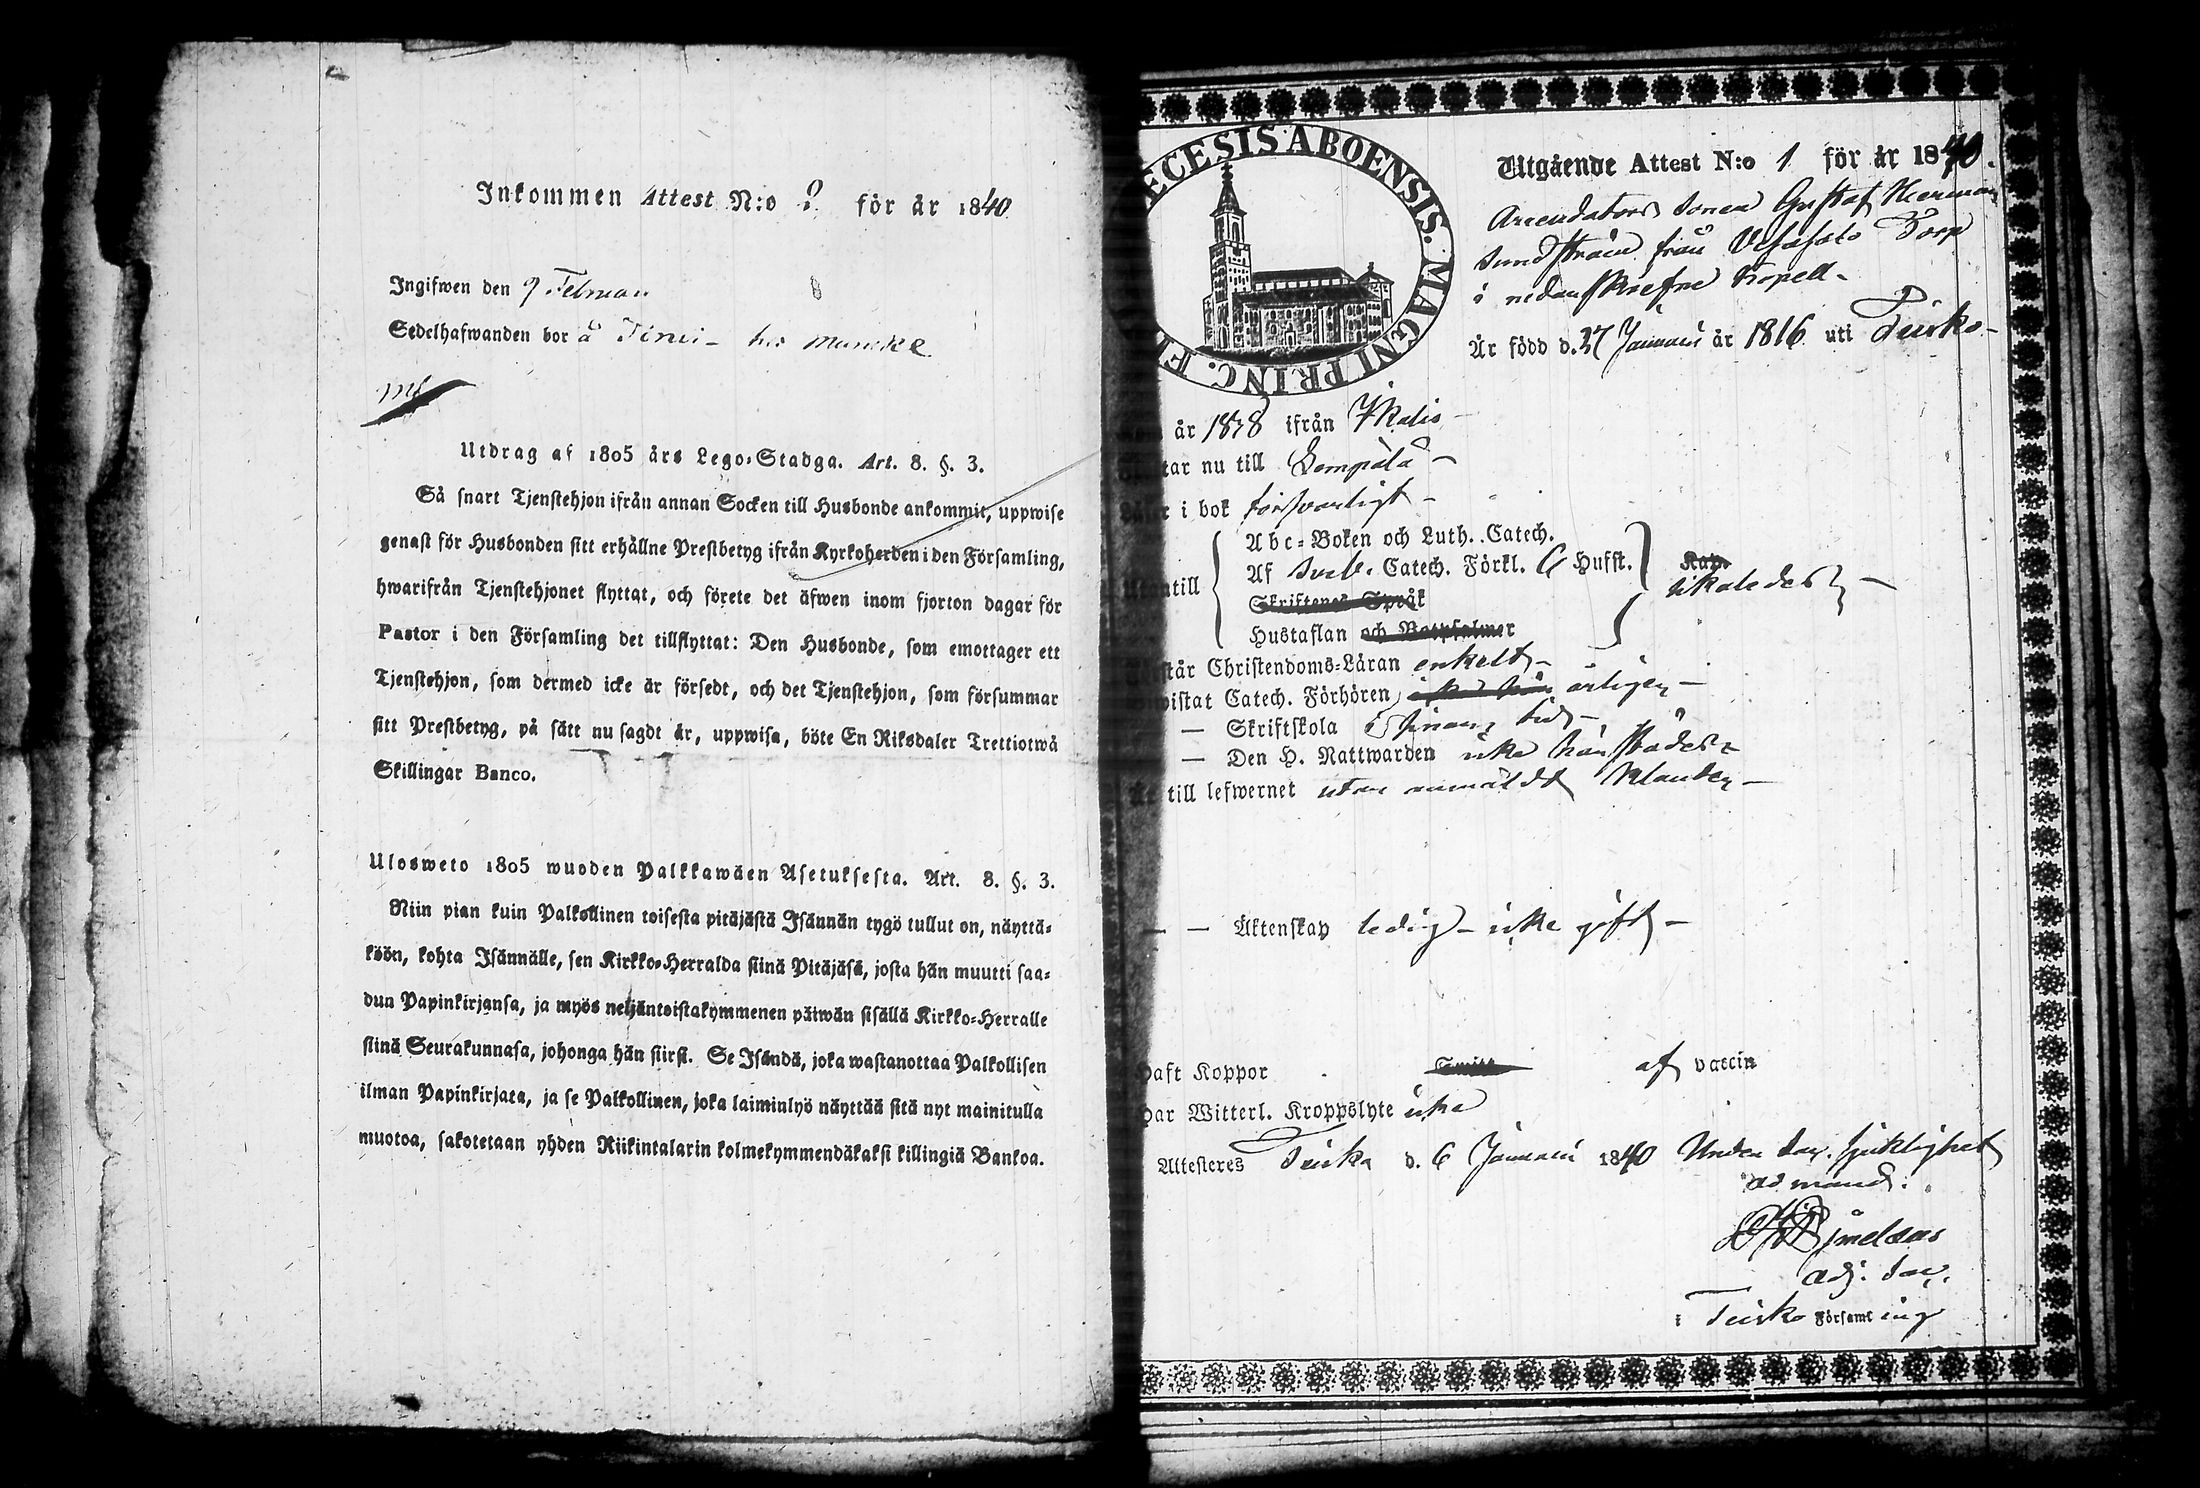 Inkommen Attest N:o 2 för år 1840
Ingifwen den 9 Februari
Sedelhafwanden bor å
Utdrag af 1805 års Lego-Stadga. Art. 8. §. 3.
Så snart Tjenstehjon ifrån annan Socken till Husbonde ankommit, uppwise
genast för Husbonden sitt erhållne Prestbetyg ifrån Kyrkoherden i den Församling,
hwarifrån Tjenstehjonet flyttat, och förete det äfwen inom fjorton dagar för
Pastor i den Församling det tillflyttat: Den Husbonde, som emottager ett
Tjenstehjon, som dermed icke är försedt, och det Tjenstehjon, som försummar
sitt Prestbetyg, på sätt nu sagdt är, uppwisa, böte En Riksdaler Trettiotwå
Skillingar Banco.
Ulosweto 1805 wuoden Palkkawäen Asetuksesta. Art. 8. §. 3.
Niin pian kuin Palkollinen toisesta pitäjästä Isännän tygö tullut on, näyttä-
köön, kohta Isännälle, sen Kirkko-Herralda siinä Pitäjäsä, josta hän muutti saa-
dun Papinkirjansa, ja myös neljäntoistakymmenen päiwän sisällä Kirkko-Herralle
siinä Seurakunnasa, johonga hän siirsi. Se Isändä, joka wastanottaa Palkollisen
ilman Papinkirjata, ja se Palkollinen, joka laiminlyö näyttää sitä nyt mainitulla
muotoa, sakotetaan yhden Riikintalarin kolmekymmendäkaksi killingiä Bankoa.
ECESIS ABOENSIS. MAGNI PRINC. FI
Utgående Attest N:o 1 för år 1840.
Arrendators sonen Gustaf Herman
Sundström från Torp
i nedanskrefne Kapell
Är född d. 27 Januari år 1816 uti Teisko
år 1838 ifrån Ikalis
tar nu till Lempälä
i bok försvarligt
Abc-Boken och Luth. Catech.
Af Sveb. Catech. Förkl. 6 Hufst.
Utantill
Skriftenes Språk
Hustaflan och Botpsalmer
står Christendoms-Läran enkelt
wistat Catech. Förhören årligen
— Skriftskola i sinom tid
— Den H. Nattwarden
till lefwernet utan anmäldt klander
— — Äktenskap ledig - icke gift
haft Koppor af vaccin
har Witterl. Kroppslyte icke
Attesteres Teisko d. 6 Januari 1840 Under Sac. sjuklighet
ad mand.
adj. Sac.
i Teisko Församling